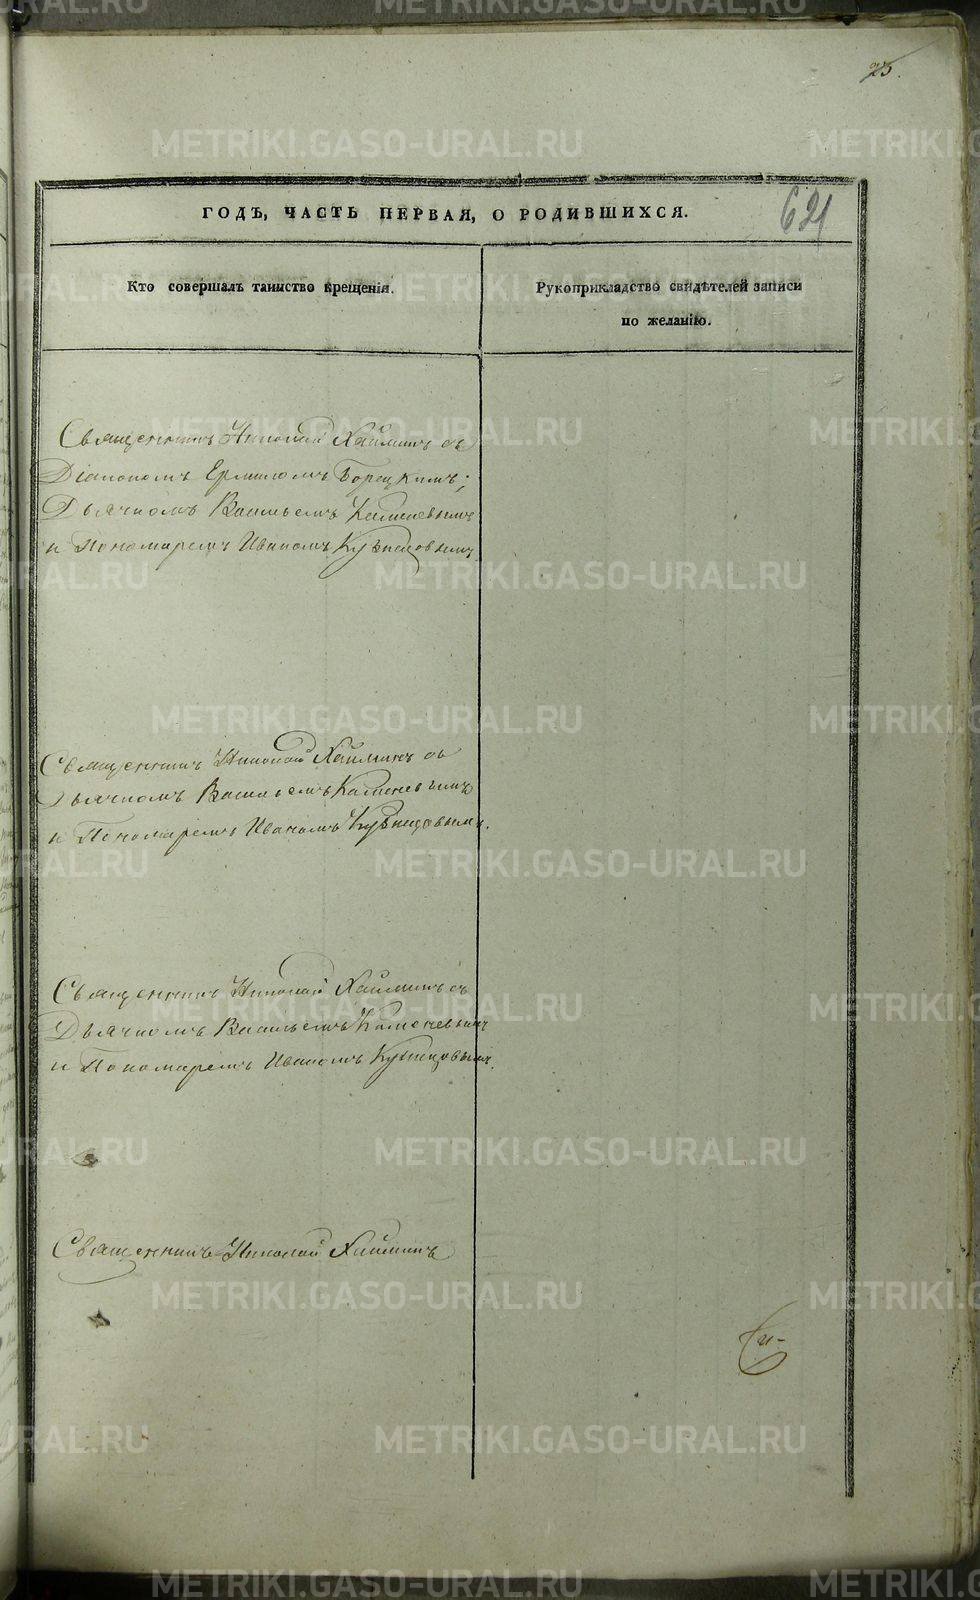 25.
621
ГОДЪ, ЧАСТЬ ПЕРВАЯ, О РОДИВШИХСЯ.
Кто совершалъ таинство крещенія.
Рукоприкладство свидѣтелей записи
по желанію.
Священникъ Николай Хлынинъ съ
Діакономъ Ермиломъ Борецкимъ;
Дьячкомъ Васильемъ Каменевымъ
и Пономаремъ Иваномъ Кузнецовымъ
Священникъ Николай Хлынинъ съ
Дьячкомъ Васильемъ Каменевымъ
и Пономаремъ Иваномъ Кузнецовымъ.
Священникъ Николай Хлынинъ съ
Дьячкомъ Васильемъ Каменевымъ
и Пономаремъ Иваномъ Кузнецовымъ.
Священникъ Николай Хлынинъ
METRIKI.GASO-URAL.RU